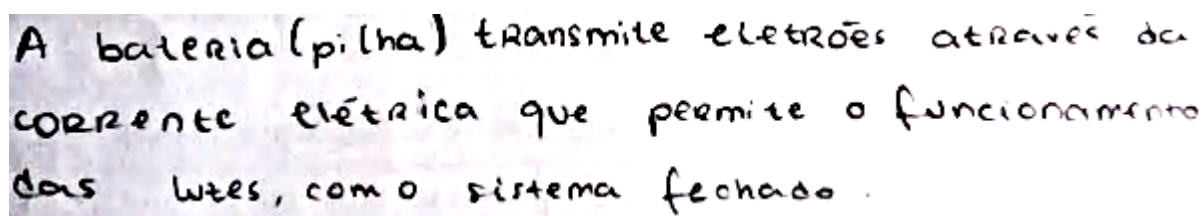 A bateria (pilha) transmite eletrões através da
corrente elétrica que permite o funcionamento
das luzes, com o sistema fechado.